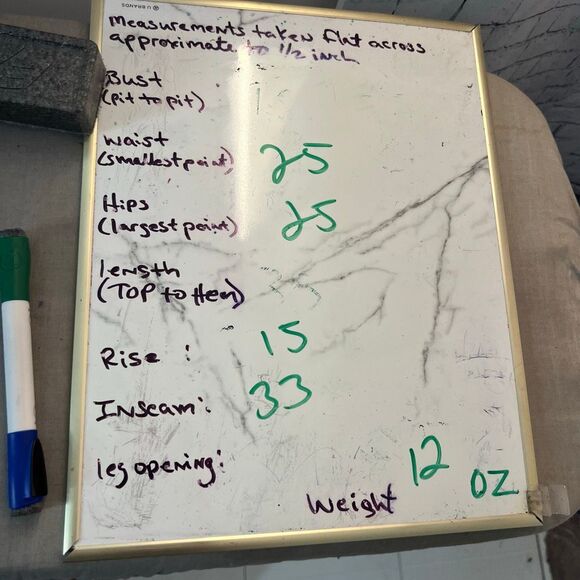 U BRANDS
Measurements taken flat across
approximate to 1/2 inch
Bust
(pit to pit)
waist
(smallest point) 25
Hips
(largest point) 25
length
(TOP to Hem)
Rise : 15
Inseam: 33
leg opening:
Weight 12 OZ